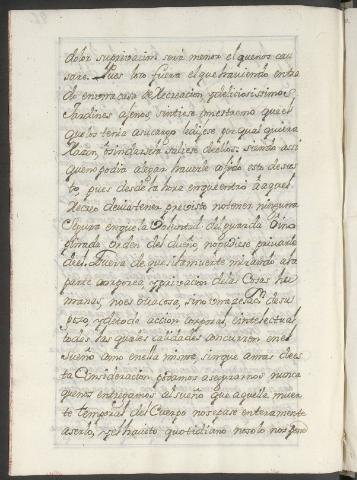 dolor su privacion será menor el que nos cau
sare. Pues loco fuera el que haviendo entra
do en una casa de Recreacion, y deliciosissimos
Jardines ajenos, sintiese en estremo que el
que los tenia a su cargo le dijese por qualquiera
Razon, o sin darsela saliese de ellos: siendo assi
que no podia alegar haverle cojido esto de sus
to, pues desde la hora en que entró a aquel
devia tener previsto no tener ninguna
segura en que la Voluntad del guarda, o in
orden del dueño no pudiese privarle
de el. Fuera de que si la muerte mirando a la
parte corporea, y privacion de las Cosas hu
manas, no es otra cosa, sino una de su
y de toda accion corporal, e intelectual
todas las quales calidades concurren en el
sueño como en ella misma, sin que a mas de es
ta Consideracion podamos asegurarnos nunca
que nos entregamos al sueño que aquella muer
te temporal del Cuerpo no se pase enteramente
a serlo, y el havito quotidiano no solo nos